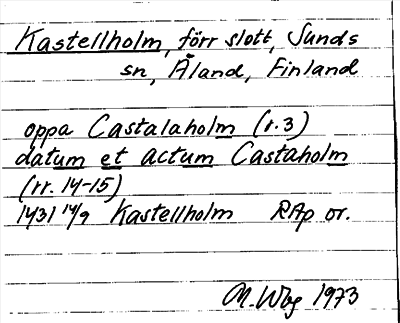 Kastellholm, förr slott, Sunds
sn, Åland, Finland
oppa Castalaholm (r.3)
datum et actum Castaholm
(rr. 14-15)
1431 14/9 Kastellholm RAp or.
M. Wbg 1973